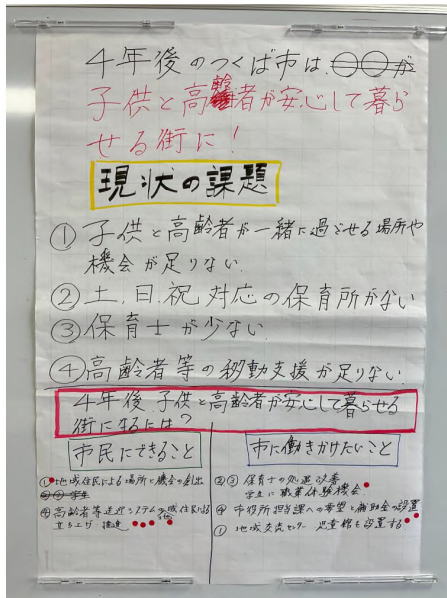 4年後のつくば市は、〇〇が
子供と高齢者が安心して暮ら
せる街に!
現状の課題
① 子供と高齢者が一緒に過らせる場所や
機会が足りない
② 土、日、祝 対応の保育所がない
③ 保育士が少ない
④ 高齢者等の移動支援が足りない
4年後 子供と高齢者が安心して暮らせる
街になるには?
市民にできること
① 地域住民による場所と機会の創出
④ 高齢者等送迎システム 地域住民による
立ち上げ 推進
市に働きかけたいこと
②③ 保育士の処遇改善
学生に職業体験機会
④ 市役所担当課への要望と補助金の設置
① 地域交流センター 児童館を設置する